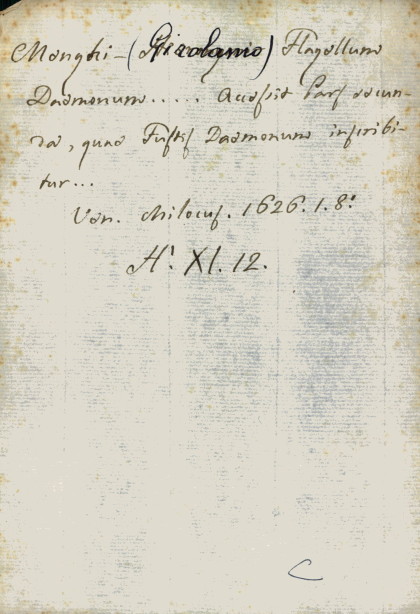 Menghi - (Girolamo) Flagellum
Daemonum ..... Accessit Pars secun-
da, quae Fustis Daemonum inscribi-
tur...
Ven. Milocus. 1626. 1. 8º
Hº XI. 12.
C